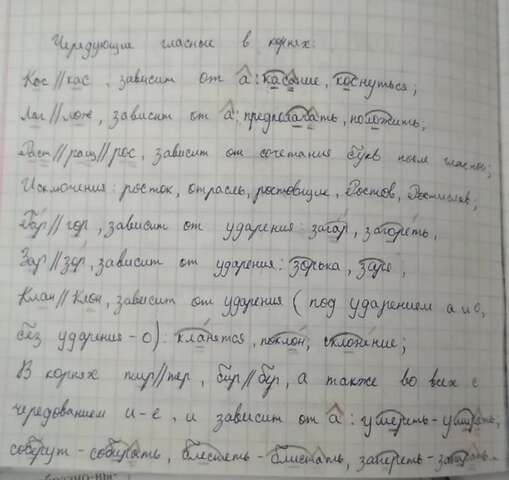 Чередующие гласные в корнях:
Кос//кас, зависит от а: касание, коснуться;
Лаг//лож, зависит от а: предполагать, положить;
Раст//ращ//рос, зависит от сочетания букв после гласных;
Исключения: росток, отрасль, ростовщик, Ростов, Ростислав;
Гар//гор, зависит от ударения: загар, загореть,
Зар//зор, зависит от ударения: зорька, заря,
Клан//Клон, зависит от ударения (под ударением а и о,
без ударения - о): кланятся, поклон, склонение;
В корнях пир//пер, бир//бер, а также во всех с
чередованием и-е, и зависит от а: умереть - умирать,
соберут - собирать, блестеть - блистать, запереть - запирать.